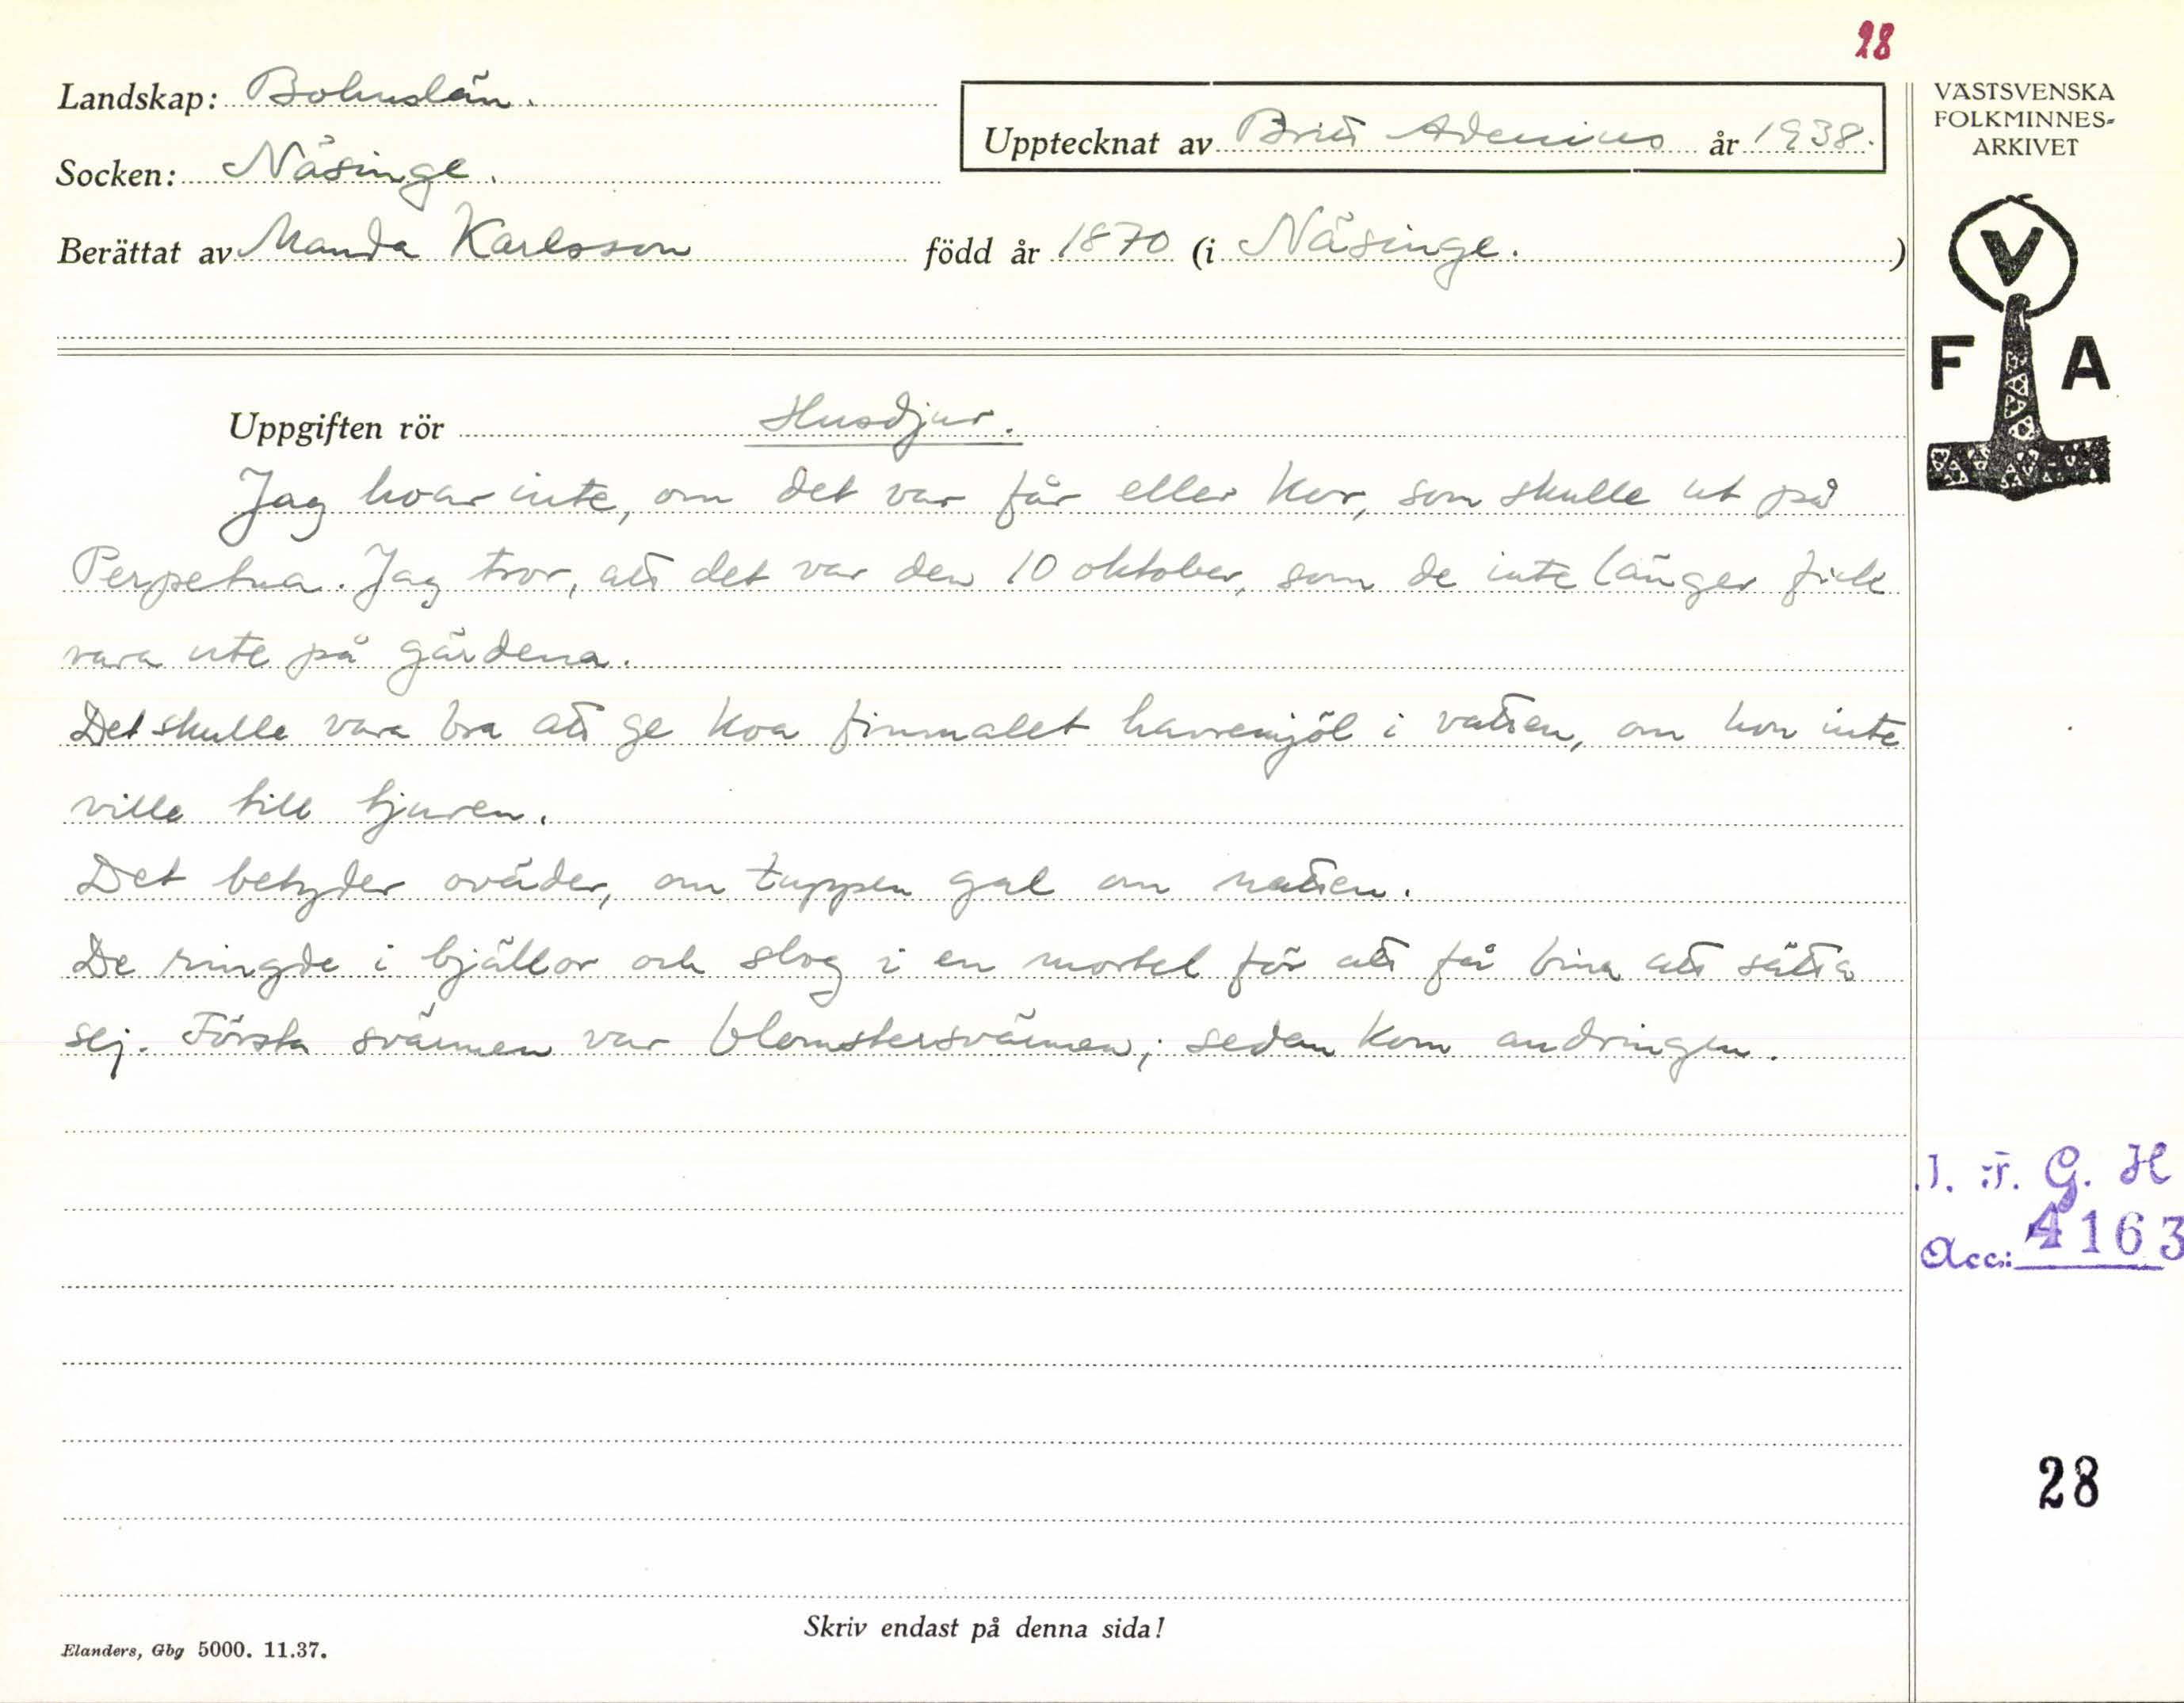 28
Landskap: Bohuslän.
Upptecknat av Britt Adenius år 1938.
Socken: Näsinge.
Berättat av Manda Karlsson född år 1870 (i Näsinge. )
VÄSTSVENSKA
FOLKMINNES-
ARKIVET
V
F A
Uppgiften rör Husdjur.
Jag hoar inte, om det var får eller kor, som skulle ut på
Perpetua. Jag tror, att det var den 10 oktober, som de inte länger fick
vara ute på gärdena.
Det skulle vara bra att ge koa finmalet havremjöl i vatten, om hon inte
ville till tjuren.
Det betyder oväder, om tuppen gal om natten.
De ringde i bjällor och slog i en mortel för att få bina att sätta
sej. Första svärmen var blomstersvärmen; sedan kom andringen.
I. F. G. H
Acc: 4163
28
Skriv endast på denna sida!
Elanders, Gbg 5000. 11.37.